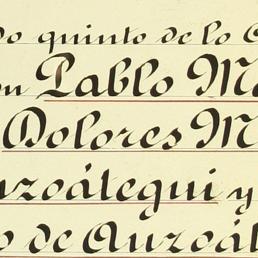 do quinto de lo C
on Pablo Ma
Dolores M
nzoátegui y
o de Anzoát